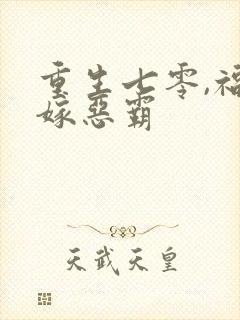 重生七零,福
嫁恶霸
天武天皇